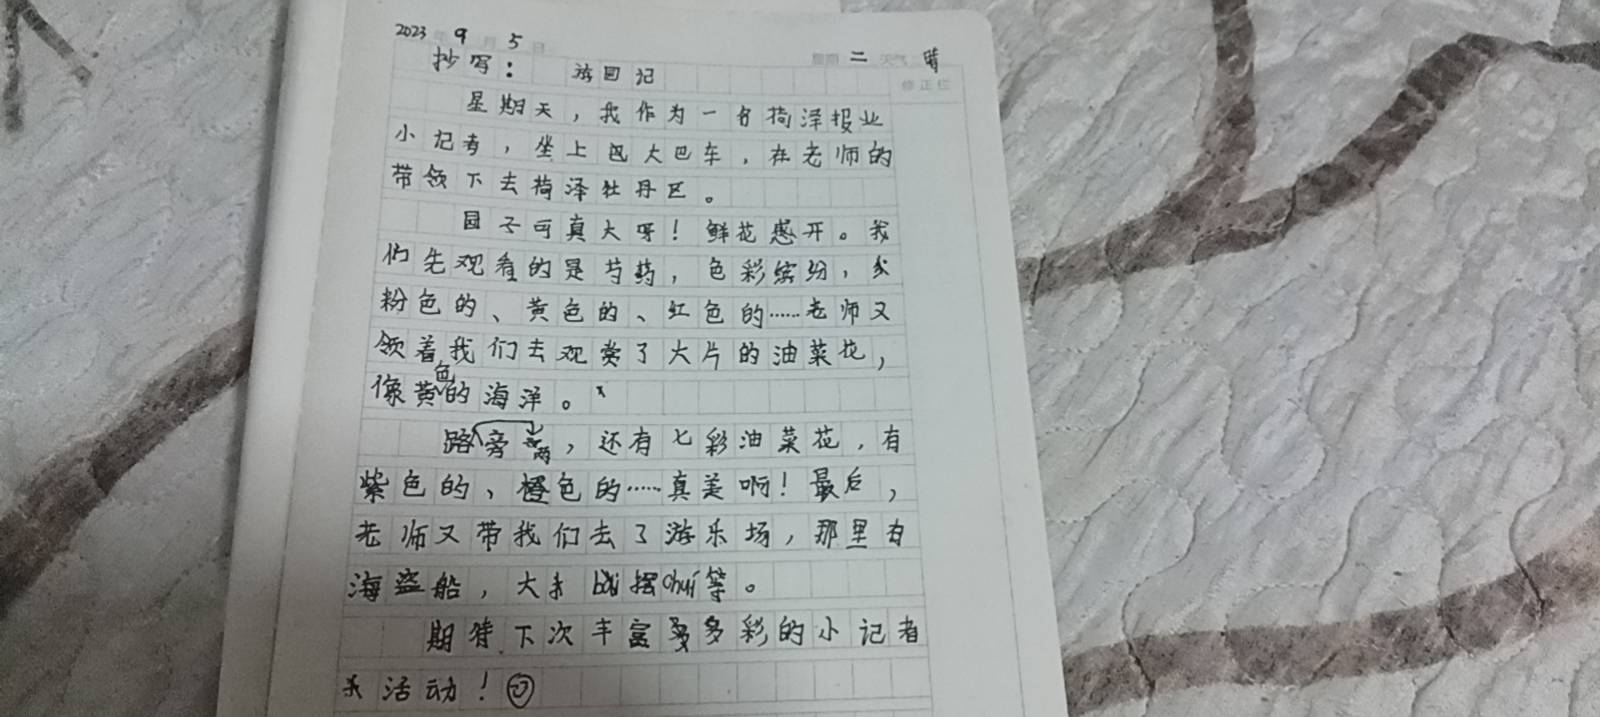 2023年9月5日 星期二 天气晴
抄写： 游园记 修正栏
星期天，我作为一名菏泽报业
小记者，坐上大巴车，在老师的
带领下去菏泽牡丹区。
园子可真大呀！鲜花盛开。我
们先观看的是芍药，色彩缤纷，
粉色的、黄色的、红色的……老师又
领着我们去观赏了大片的油菜花，
像黄色的海洋。
路旁两，还有七彩油菜花，有
紫色的、橙色的……真美啊！最后，
老师又带我们去了游乐场，那里有
海盗船，大bǎi摆chuí等。
期待下次丰富多彩的小记者
活动！